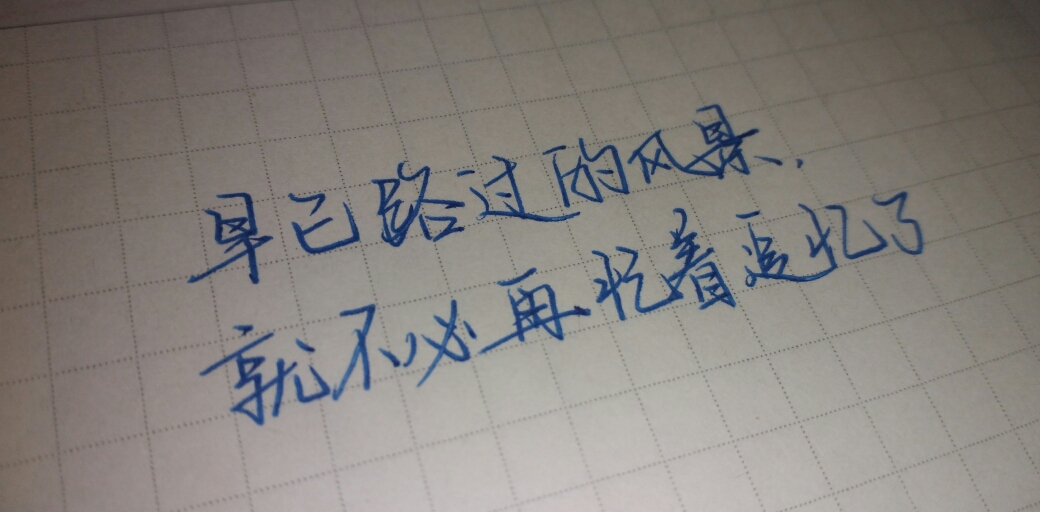 早已路过的风景，
就不必再忙着追忆了